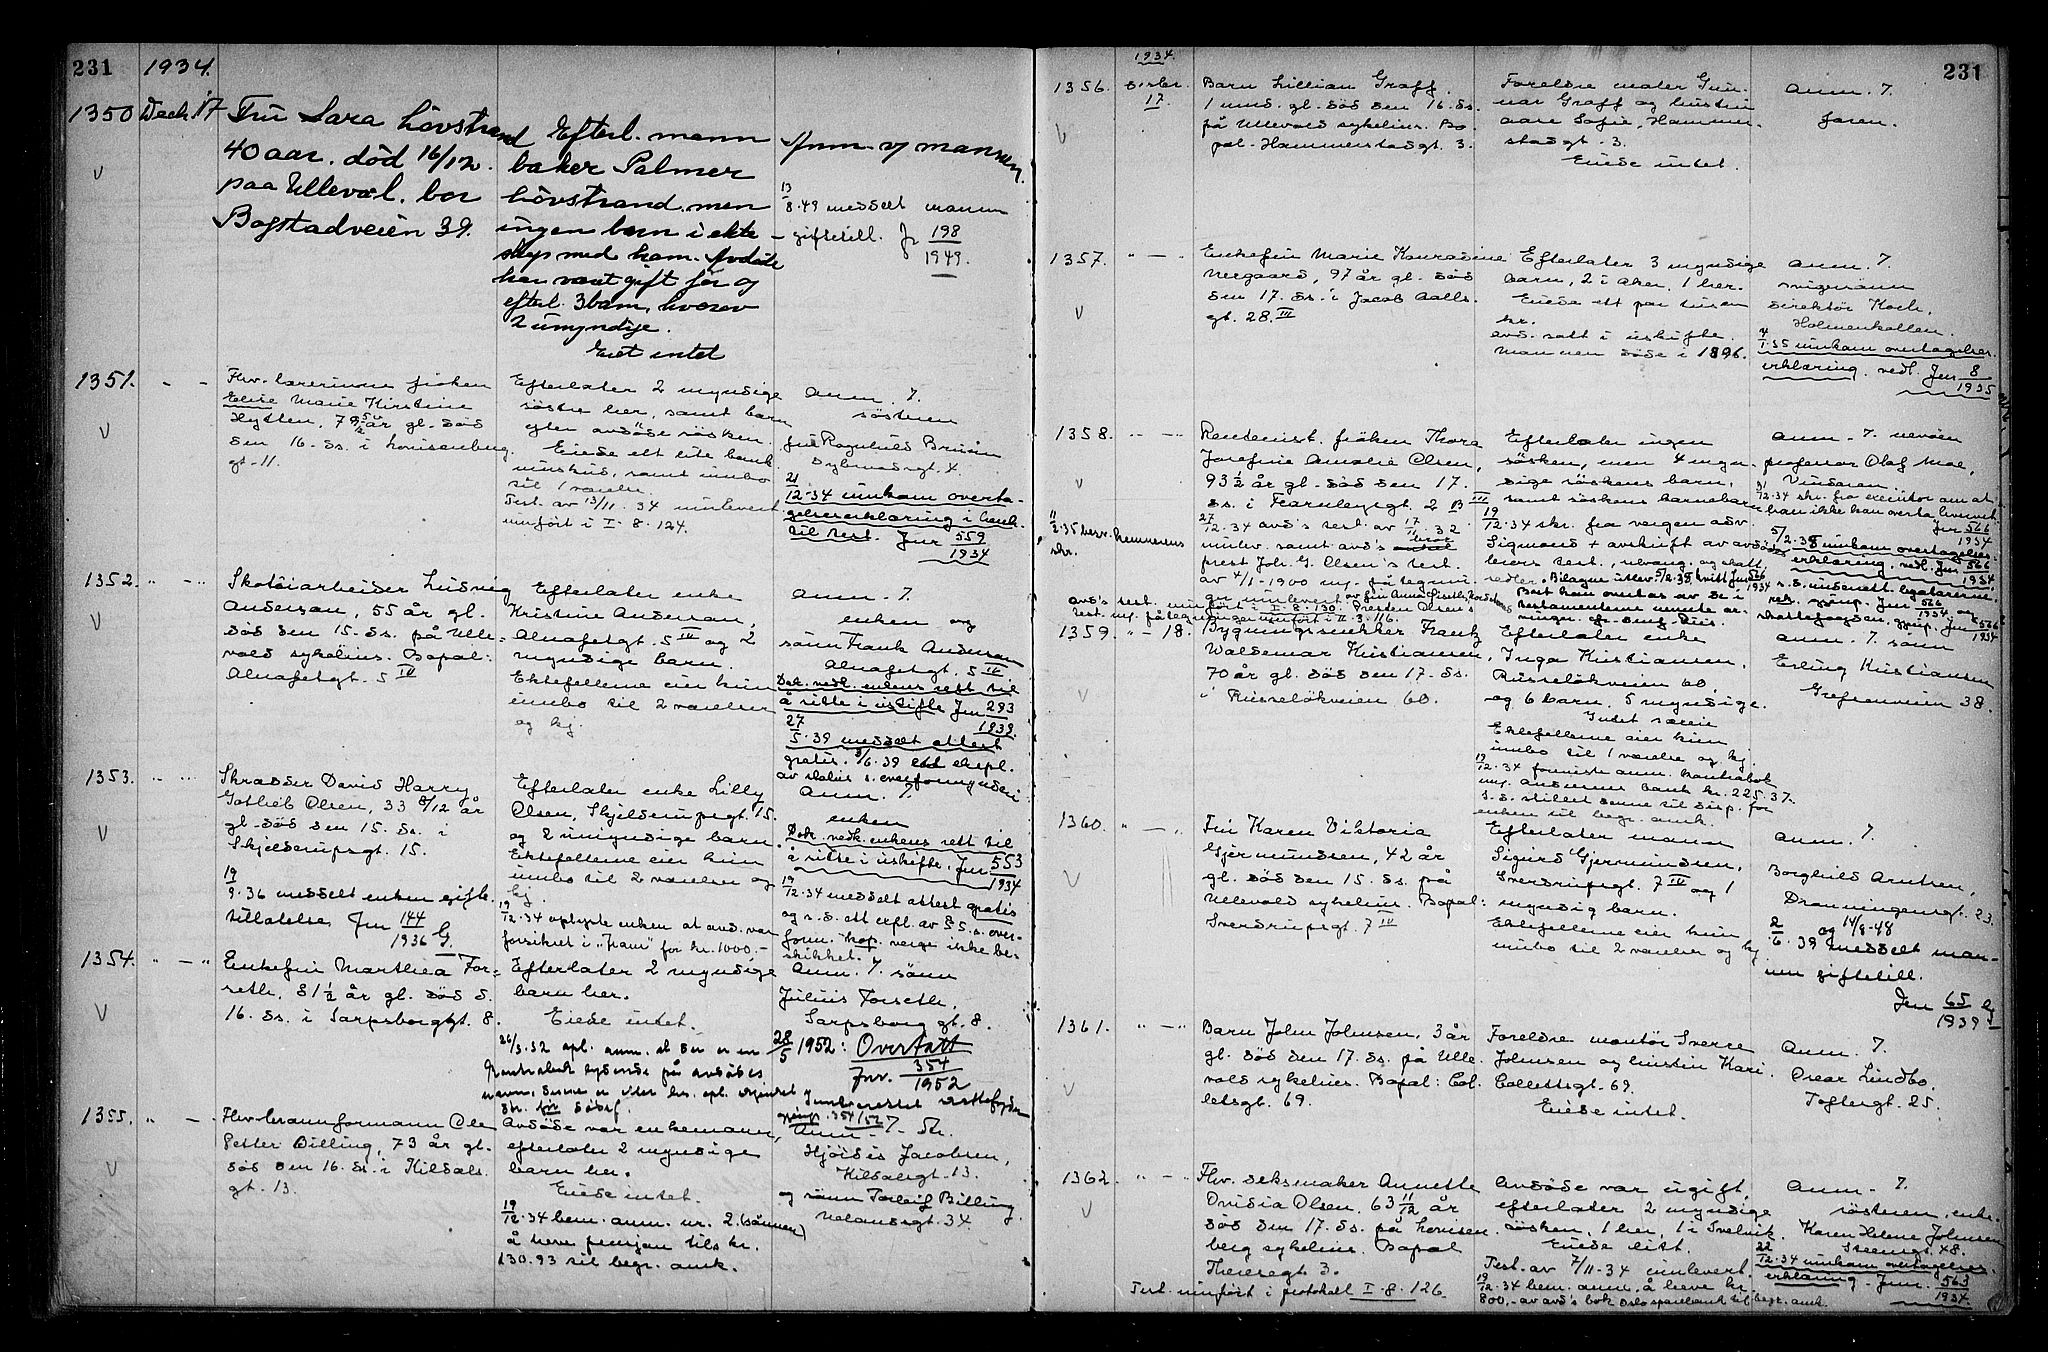 231
1934.
1350 Decb. 17
Fru Sara Lövstrand
40 aar. död 16/12.
paa Ullevol. bor
Bogstadveien 39.
Efterl. mann
baker Palmer
Lövstrand. men
ingen barn i ekte-
skap med ham. Avdöde
har vært gift för og
efterl. 3 barn, hvorav
2 umyndige.
Eiet intet
Anm. af mannen.
13
8.49 meddelt mannen
giftetill. Jr 198
1949.
1351. - -
Fhv. lærerinne fröken
Elise Marie Kirstine
Hytten, 79 5/12 år gl. död
den 16. ds. i Louisenberg
gt. 11.
Efterlater 2 myndige
söstre her, samt barn
efter avdöde søsken.
Eiede ett lite bank
innskud, samt innbo
til 1 værelse
Test. av 13/11. 34 innlevert
innfört i I. 8. 124.
Anm. 7.
søsteren
fru Ragnhild Bruun
Sybernsgt. 4.
21
12.34 innkom overta-
gelseserklæring i henh.
til test. Jnr 559
1934
1352. " - "
Skotöiarbeider Ludvig
Andersen, 55 år gl.
död den 15. ds. på Ulle-
vold sykehus. Bopæl:
Alnafetgt. 5 IV
Efterlater enke
Kristine Andersen,
Alnafetgt. 5 IV og 2
myndige barn.
Ektefellene eier kun
innbo til 2 værelser
og kj.
Anm. 7.
enken og
sönn Frank Andersen
Alnafetgt. 5 IV.
Dok. vedk. enkens rett til
å sitte i uskifte Jnr 293
1939.
27
5.39 meddelt attest
gratis. 3/6.39 ett ekspl.
av datus s. overformynderi
1353. " "
Skredder David Harry
Gotlieb Olsen, 33 8/12 år
gl. död den 15. ds. i
Skjelderupsgt. 15.
19
9.36 meddelt enken gifte-
tillatelse Jnr 144
1936 G.
Efterlater enke Lilly
Olsen, Skjelderupsgt. 15.
og 2 umyndige barn.
Ektefellene eier kun
innbo til 2 værelser og
kj.
19
12.34 oplyste enken at avd. var
forsikret i "Fram" for kr. 1000,-
Anm. 7.
enken
Dok. vedk. enkens rett til
å sitte i uskifte, Jnr 553
1934
19
12.34 meddelt attest gratis
og s. d. ett expl. av § 5 s. over-
form. kop. verge ikke be-
skikket.
1354. " - "
Enkefru Marthea For-
seth, 81 1/2 år gl. död d.
16. ds. i Sarpsborggt. 8.
Efterlater 2 myndige
barn her.
Eiede intet.
26/3.52 opl. anm. at der er en
Kontrabok lydende på avdödes
navn. Denne er efter hs. opl. skjenket
för dödsf.
Anm. 7. sönn
Julius Forseth,
Sarpsborg gt. 8.
28
5 1952: Overtatt
Jnr. 354
1952
gjenp. 354/52
1355. " -
Fhv. brannformann Ole
Petter Billing, 73 år gl.
död den 16. ds. i Kildals
gt. 13.
Avdöde var enkemann,
efterlater 2 myndige
barn her.
Eiede intet.
19
12.34 bem. anm. nr. 2 (sönnen)
å heve penger tils kr.
130.93 til begr. omk.
Anm. 7. Dtr.
Hjördis Jacobsen,
Kildalsgt. 13.
og sönn Torleif Billing
Nelandsgt. 34.
231
1934.
1356. Desbr.
17.
Barn Lillian Graff.
1 mnd. gl. död den 16. ds.
på Ullevold sykehus. Bo-
pæl: Hammerstadgt. 3.
Foreldre maler Gun-
nar Graff og hustru
Aase Sofie, Hammer-
stadgt. 3.
Eiede intet.
Anm. 7.
faren.
1357. " - "
Enkefru Marie Konradine
Neegaard, 97 år gl. död
den 17. ds. i Jacob Aalls
gt. 28. III
Efterlater 3 myndige
barn, 2 i Aker, 1 her.
Eiede ett par tusen
kr.
avd. satt i uskifte.
Mannen döde i 1896.
Anm. 7.
svigersönn
direktör Koch,
Holmenkollen.
4
1.35 innkom overtagelses-
erklæring. vedl. Jnr 8
1935
1358. " - "
Rentenist. fröken Thora
Josefine Amalie Olsen,
93 1/2 år gl. död den 17.
ds. i Fearnleysgt. 2 B III
27
12.34 avd's test. av 17/11. 32
innlev. samt avd's bror
prest Joh. G. Olsen's test.
av 4/1-1900 m. påtegnin-
ger innlevert av frk Anna
avd's test. innfört i I. 8. 130. Presten Olsen's
test. m. påtegninger innfört i II. 3. 116.
11
2.35 besv. kemnerens
skr.
Efterlater ingen
søsken, men 4 myn-
dige søskens barn,
samt søskens barnebarn
19
12.34 skr. fra vergen adv.
Sigmond + avskrift av avdödes
leiers test., utvang. og skatt
sedler. Bilagene utlev. 5/2.38, kvitt Jnr 566
1934
Boet kan overtas av de i
testamentene nevnte ar-
vinger
Anm. 7. nevöen
professor Olaf Moe,
Vinderen
31
12.34 skr. fra executor om at
han ikke kan overta hvervet
Jnr 566
1934
5/2.38 innkom overtagelses-
erklæring, vedl. Jnr 566
1934
s. d. underrett. legatarene.
rek. gjenp. Jnr 566
1934 og
skattefogden, gjenp. Jnr 566
1934
1359. " - 18.
Bygningssnekker Frantz
Waldemar Kristiansen,
70 år gl. död den 17. ds.
i Ruseløkveien 60.
Efterlater enke
Inga Kristiansen,
Ruseløkveien 60,
og 6 barn, 5 myndige.
Intet særeie
Ektefellene eier kun
innbo til 1 værelse og kj.
19
12.34 foreviste anm. Kontrabok
m. Andresens bank kr. 225.37.
s. d. stillet denne til disp. for
enken til begr. omk.
Anm. 7. sönn
Erling Kristiansen
Grefsenveien 38.
1360. " - "
Fru Karen Viktoria
Gjermundsen, 42 år
gl. död den 15. ds. på
Ullevold sykehus. Bopæl:
Sverdrupsgt. 7 III
Efterlater mann
Sigurd Gjermundsen,
Sverdrupsgt. 7 IV og 1
myndig barn.
Ektefellene eier kun
innbo til 2 værelser og kj
Anm. 7.
Borghild Arntsen,
Dronningensgt. 23.
og 14/8-48
2
6.39 meddelt man-
nen giftetill.
Jnr 65
1939 G
1361. " - "
Barn John Johnsen, 3 år
gl. död den 17. ds. på Ulle
vold sykehus. Bopæl: Col-
lettsgt. 69.
Foreldre montör Sverre
Johnsen og hustru Kari.
Collettsgt. 69.
Eiede intet.
Anm. 7.
Oscar Lindbo.
Toftesgt. 25.
1362. " - "
Fhv. æskemaker Annette
Ovidia Olsen, 63 11/12 år
död den 17. ds. på Lovisen-
berg sykehus. Bopæl
Theresegt. 3.
Test. innfört i protokoll I. 8. 126.
Avdöde var ugift,
efterlater 2 myndige
søsken, 1 her, 1 i Svelvik.
Eiede litt.
Test. av 7/11-34 innlevert.
19
12.34 bem. anm. å heve kr.
800,- av avd's bok Oslo sparebank til begr. omk.
Anm. 7.
søsteren, enke-
Karen Helene Johnsen
Steensgt. 48.
22
12.34 innkom overtagelses-
erklæring - Jnr. 563
1934.